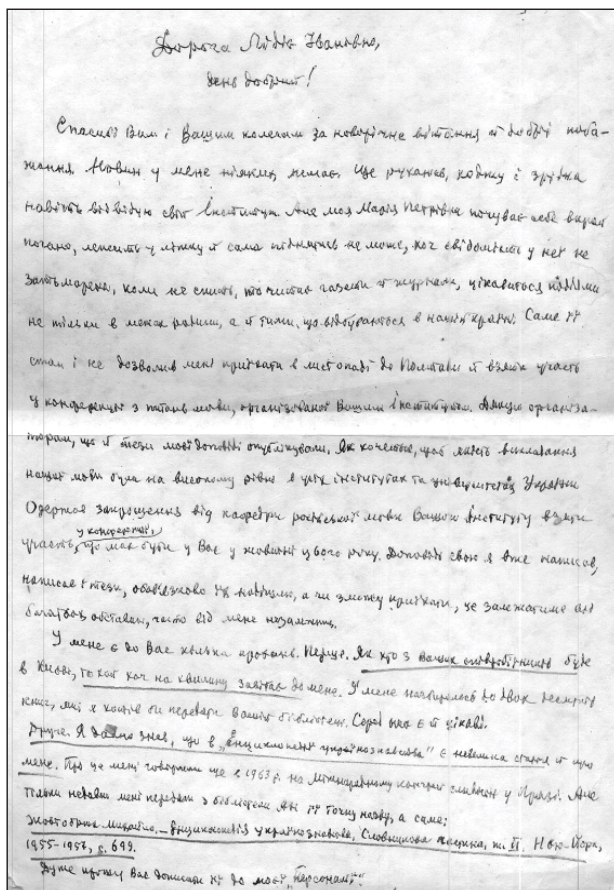 Дорога Лідіє Іванівно,
день добрий!
Спасибі Вам і Вашим колегам за новорічне вітання й добрі поба-
жання. Новин у мене ніяких немає. Ще рухаюсь, ходжу і зрідка
навіть відвідую свій інститут. Але моя Марія Петрівна почуває себе вкрай
погано, лежить у ліжку й сама піднятись не може, хоч свідомість у неї не
затьмарена, коли не спить, то читає газети й журнали, цікавиться подіями
не тільки в межах родини, а й тими, що відбуваються в нашій країні. Саме її
стан і не дозволив мені приїхати в листопаді до Полтави й взяти участь
у конференції з питань мови, організованої Вашим інститутом. Дякую організа-
торам, що й тези моєї доповіді опублікували. Як хочеться, щоб якість викладання
нашої мови була на високому рівні в усіх інститутах та університетах України
Одержав запрошення від кафедри російської мови Вашого інституту взяти
участь у конференції, що має бути у Вас у жовтні цього року. Доповідь свою я вже написав,
написав і тези, обов'язково їх надішлю, а чи зможу приїхати, це залежатиме від
багатьох обставин, часто від мене незалежних.
У мене є до Вас кілька прохань. Перше. Як хто з Ваших співробітників буде
в Києві, то хай хоч на хвилину завітає до мене. У мене назбиралося до двох десятків
книг, які я хотів би передати Вашій бібліотеці. Серед них є й цікаві.
Друге. Я давно знав, що в „Енциклопедії українознавства" є невелика стаття й про
мене. Про це мені говорили ще в 1963 р. на міжнародному конгресі славістів у Празі. Але
тільки недавно мені передали з бібліотеки АН її точну назву, а саме:
Жовтобрюх Михайло. – Енциклопедія українознавства, Словникова частина, т. II. Нью-Йорк,
1955–1957, с. 699.
Дуже прошу Вас дописати її до моєї „Персоналії".